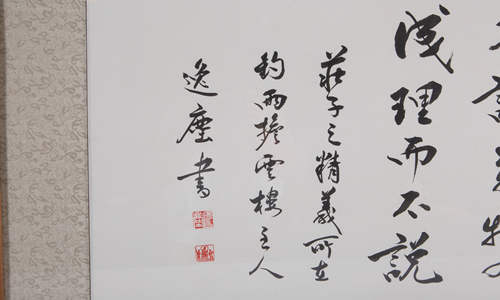 成理而不說
莊子之精義所在
釣雨擔雲樓主人
逸塵書